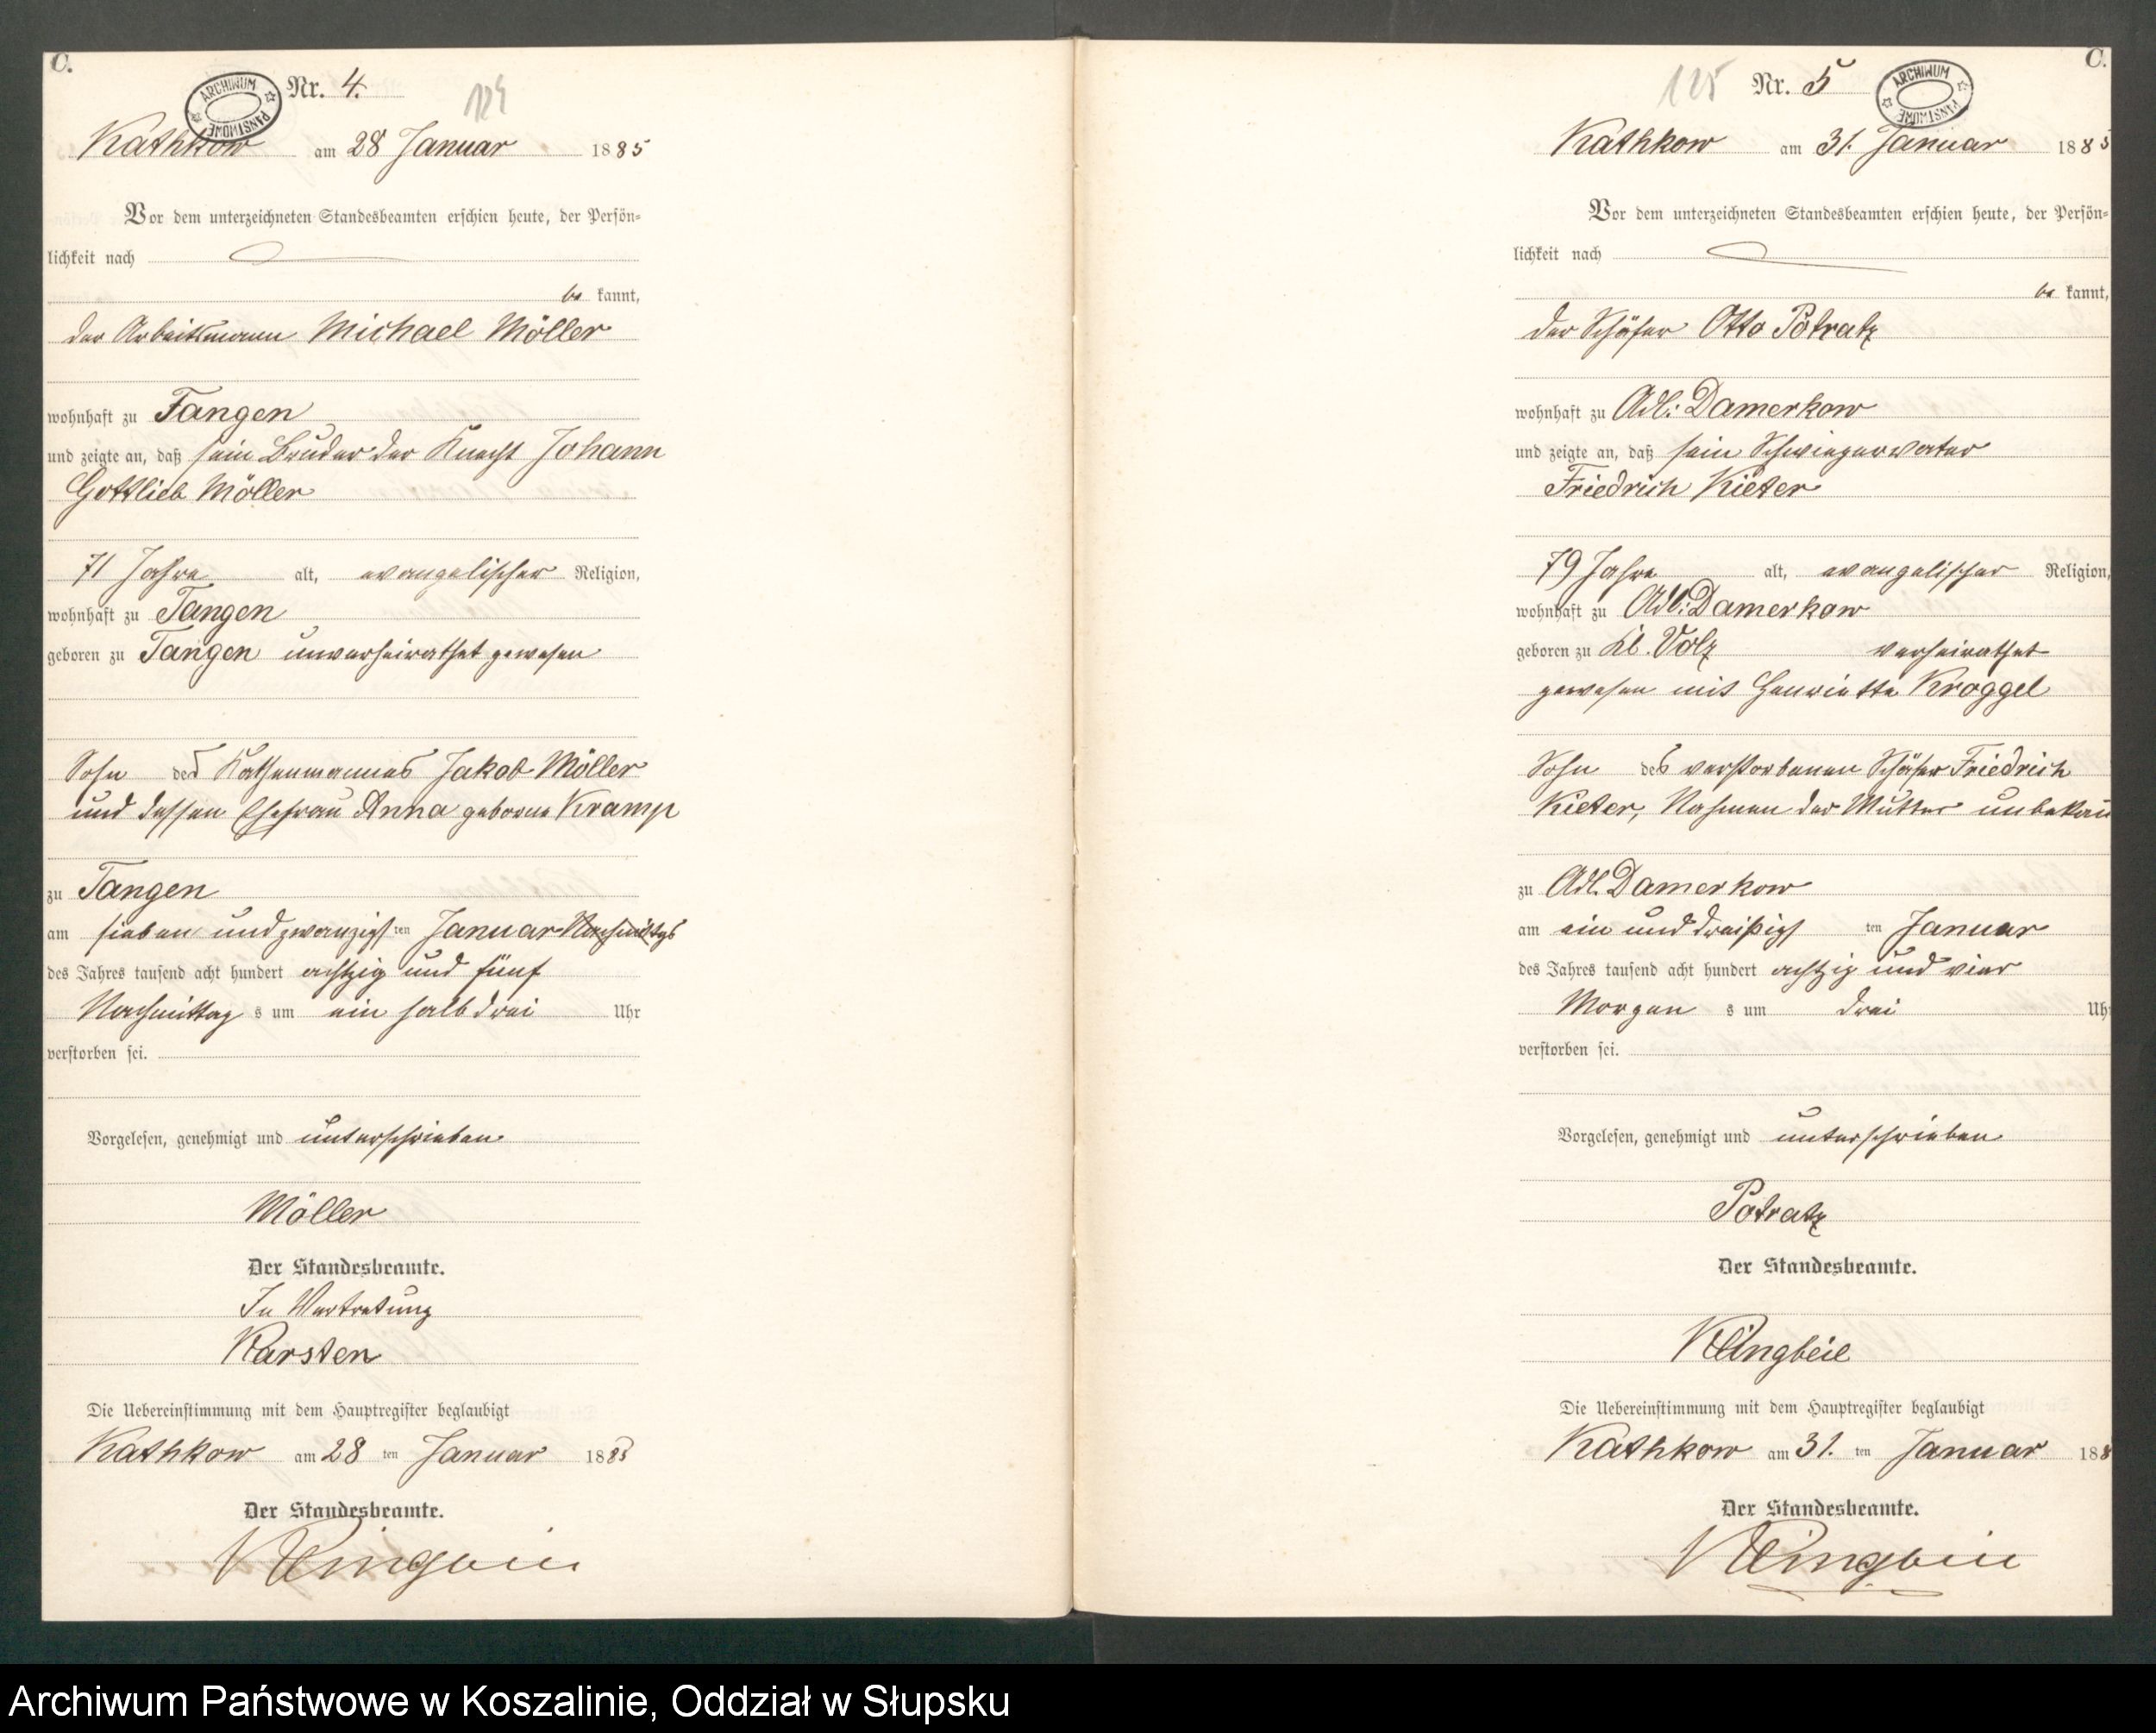 C.
Nr. 4.
124
ARCHIWUM PAŃSTWOWE
Kathkow am 28 Januar 1885
Vor dem unterzeichneten Standesbeamten erschien heute, der Persön-
lichkeit nach
be kannt,
der Arbeitsmann Michael Möller
wohnhaft zu Tangen
und zeigte an, daß sein Bruder der Knecht Johann
Gottlieb Möller
71 Jahre alt, evangelischer Religion,
wohnhaft zu Tangen
geboren zu Tangen unverheirathet gewesen
Sohn des Kathenmannes Jakob Möller
und dessen Ehefrau Anna geborne Kramp
zu Tangen
am sieben und zwanzigsten Januar Nachmittags
des Jahres tausend acht hundert achtzig und fünf
Nachmittag s um ein halb drei Uhr
verstorben sei.
Vorgelesen, genehmigt und unterschrieben
Möller
Der Standesbeamte.
In Vertretung
Karsten
Die Uebereinstimmung mit dem Hauptregister beglaubigt
Kathkow am 28 ten Januar 1885
Der Standesbeamte.
Klingbeil
C.
125
Nr. 5
ARCHIWUM PAŃSTWOWE
Kathkow am 31. Januar 1885
Vor dem unterzeichneten Standesbeamten erschien heute, der Persön-
lichkeit nach
be kannt,
der Schäfer Otto Potratz
wohnhaft zu Adl: Damerkow
und zeigte an, daß sein Schwiegervater
Friedrich Kieter
79 Jahre alt, evangelischer Religion,
wohnhaft zu Adl: Damerkow
geboren zu Kl. Volz verheirathet
gewesen mit Henriette Kroggel
Sohn des verstorbenen Schäfer Friedrich
Kieter, Nahmen der Mutter unbekan
zu Adl. Damerkow
am ein und dreißigs ten Januar
des Jahres tausend acht hundert achtzig und vier
Morgen s um drei Uhr
verstorben sei.
Vorgelesen, genehmigt und unterschrieben
Potratz
Der Standesbeamte.
Klingbeil
Die Uebereinstimmung mit dem Hauptregister beglaubigt
Kathkow am 31. ten Januar 188
Der Standesbeamte.
Klingbeil
Archiwum Państwowe w Koszalinie, Oddział w Słupsku